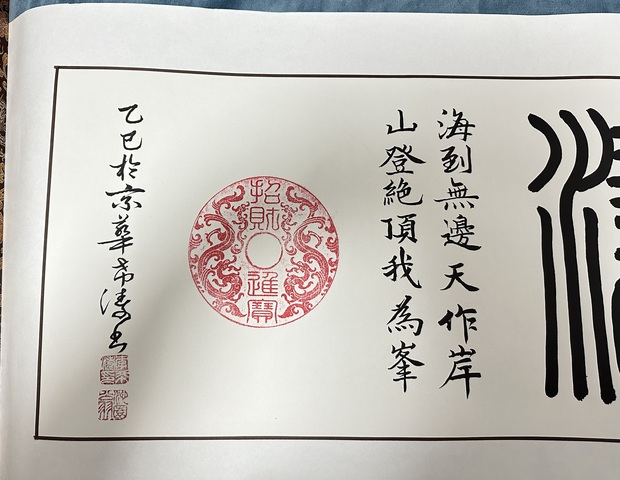 海到無邊天作岸
山登絶頂我為峯
招財
進寶
乙巳於京華希濤書